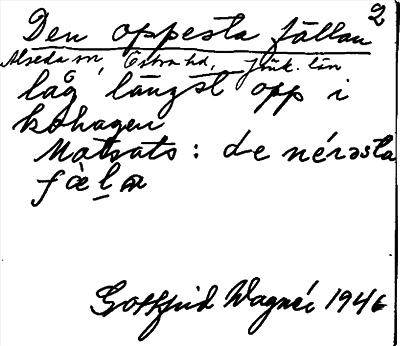 2
Den oppesta fållan
Alseda sn, Östra hd, Jönk. län
låg längst opp i
kohagen
Motsats: de nérəsta
få̀lan
Gottfrid Wagnér 1946